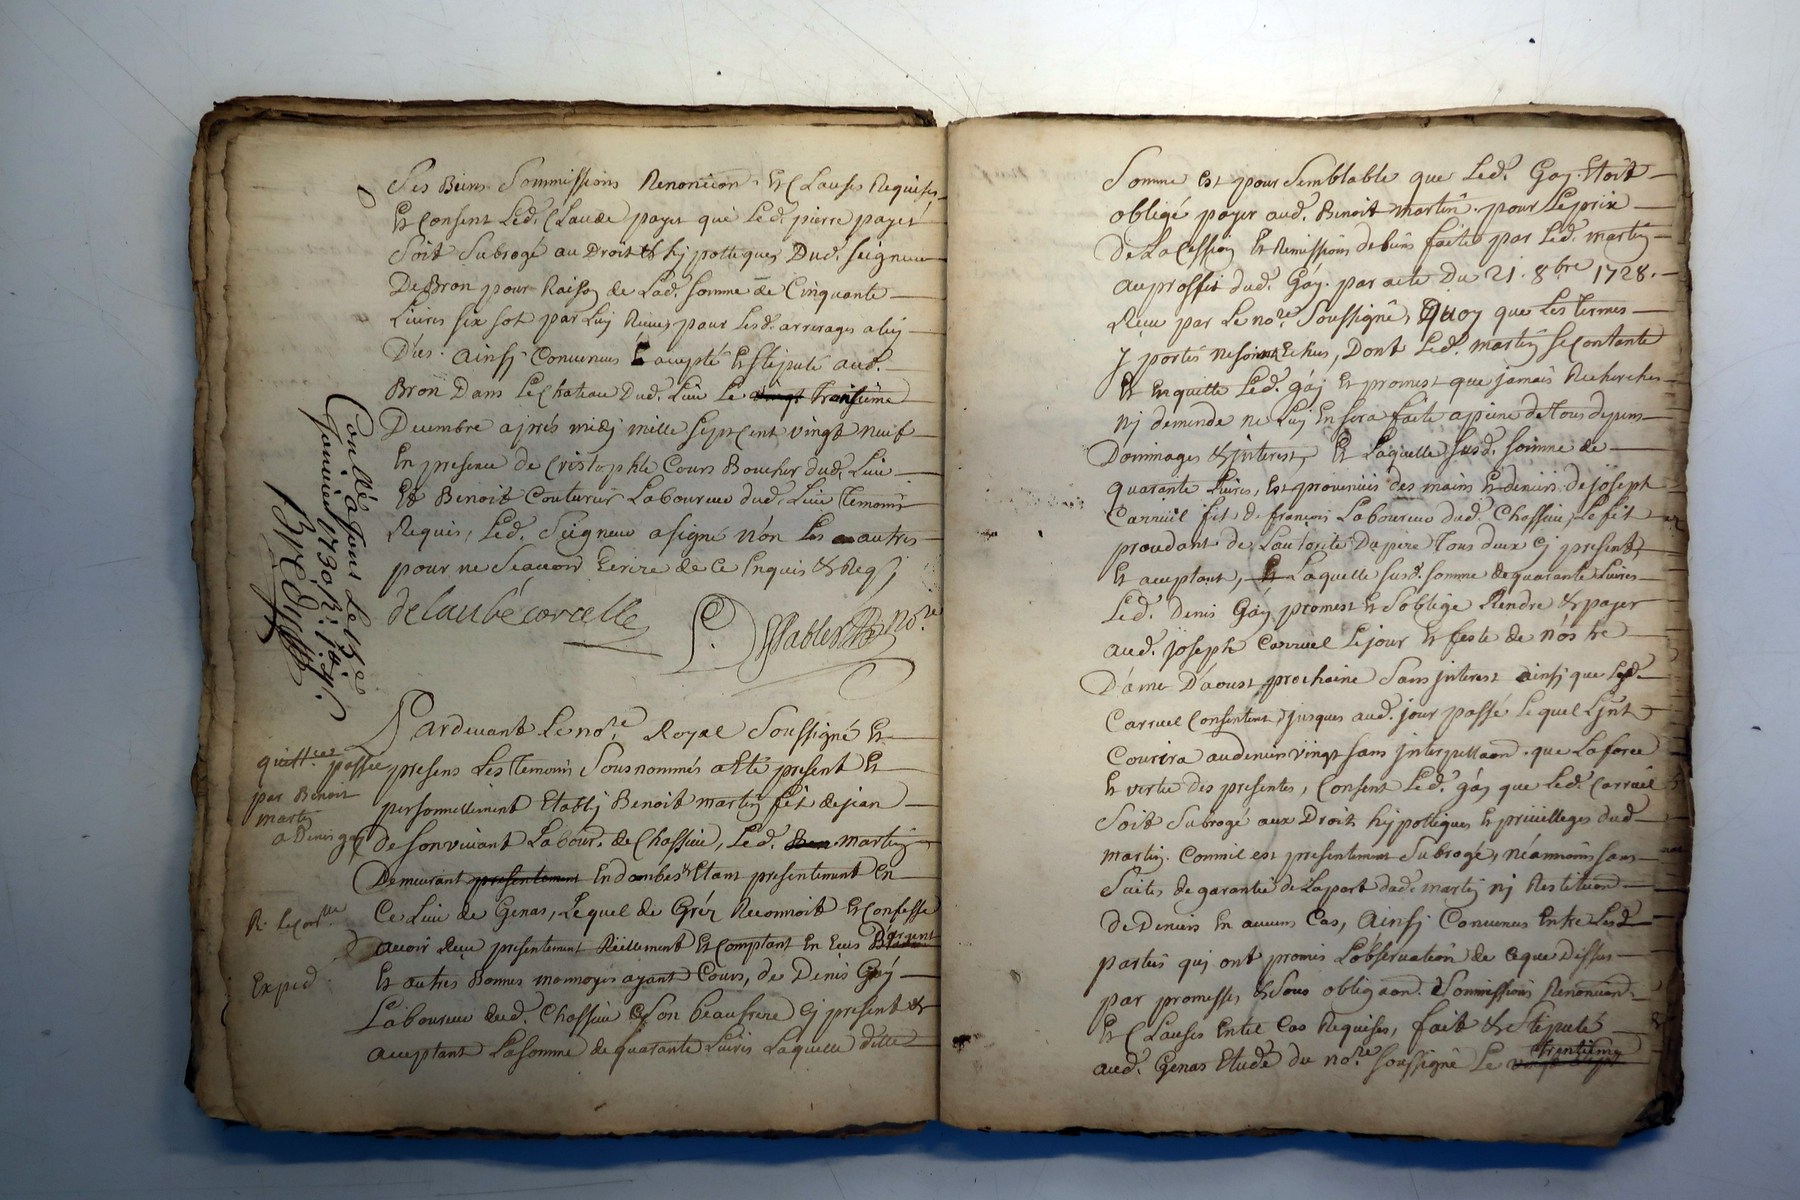 Ses Biens Sommissions Renonciõn Et Clauses Requises
Et Consent Led. Claude payet que Led. pierre payet
Soit Subrogé au Droit & hypotteques Dud. seigneur
De Bron pour Raison de Lad. somme de Cinquante
Livres six sol par Luy Reçues pour Lesd. arrerages a luy
Dus. ainsy Convenus accepté Et Stipulé aud.
Bron Dans Le Chateau Dud. Lieu Le vingt troisieme
Decembre aprés midy mille sept Cent vingt neuf
En presence de Cristophle Cours Boucher dud. Lieu
Et Benoit Couturier Laboureur dud. Lieu temoins
Requis, Led. Seigneur a signé non Les autres
pour ne Scavoir Ecrire de Ce Enquis & Reqs
delaubé corcelle
no.re
Conllé a Jons Le 15e
Janvier 1730 R:
Pardevant Le no.re Royal Soussigné Et
quitt.ce passee
presens Les temoins Sousnommés a Eté present Et
par Benoit
personnellement Etably Benoit martin fils de jean
martin
a Denis gay
de son vivant Labour. de Chassieu, Led. Ben martin
Demeurant presentement Et Etant presentement En
Ce Lieu de Genas, Lequel de Gréz Reconnoit Et Confesse
R. Le
avoir Reçu presentement Réellement Et Comptant En Ecus D'argent
Et autres Bonnes monnoyes ayant Cours, de Denis Gay
Exped.
Laboureur dud. Chassieu Son beaufrere Cy present &
acceptant La somme de quarante Livres Laquelle ditte
Somme est pour Semblable que Led. Gay Etoit
obligé payer aud. Benoit martin pour Le prix
de La Cession Et Remissions de biens faitte par Led. martin
au proffit dud. Gay. par acte Du 21. 8bre 1728.
Reçu par Le no.re Soussigné, Quoy que Les termes
y portés ne soint Echus, Dont Led. martin se Contante
Et En quitte Led. gay Et promest que jamais Recherches
ny demende ne Luy En sera faite a peine de tous depens
Dommages & interest, Et Laquelle susd. somme de
quarante Livres, Est provenüe des mains Et deniers de joseph
Carruel fils d. françois Laboureur dud. Chassieu, Le fils
procedant de L'autorité Du pere tous deux Cy presents
Et acceptant, Et Laquelle susd. somme de quarante Livres
Led. Denis Gay promest Et S'oblige Rendre & payer
aud. joseph Carruel Le jour Et feste de nostre
Dame D'aoust prochaine Sans interest ainsy que Led.
Carruel Consentent jusques aud. jour passé Lequel L'int
Courira au denier vingt sans interpellaõn. que La force
Et vertu Des presentes, Consent Led. gay que Led. Carruel
Soit Subrogé aux Droits hypotteques Et privilleges dud.
martin. Comm'il est presentement Subrogé, néanmoins sans
Suites de garantie de La part dud. martin ny Restituõn
de Deniers En aucuns Cas, Ainsy Convenus Entre Lesd.
parties qui ont promis L'observation de Ce que Dessus
par promesses & Sous obligaõn. Sommissions Renonciõn.
Et Clauses En tel Cas Requises, fait & stipulé
aud. Genas Etude du no.re soussigné Le vingt sept trentieme